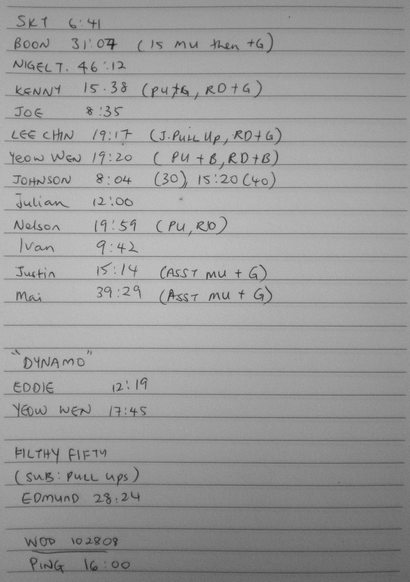 SKT 6:41
BOON 31:07 (15 MU then +G)
NIGEL T. 46:12
KENNY 15.38 (PU+G, RD+G)
JOE 8:35
LEE CHIN 19:17 (J.PULL UP, RD+G)
YEOW WEN 19:20 (PU+B, RD+B)
JOHNSON 8:04 (30), 15:20 (40)
Julian 12:00
Nelson 19:59 (PU, RD)
Ivan 9:42
Justin 15:14 (ASST MU + G)
Mai 39:29 (ASST MU + G)
"DYNAMO"
EDDIE 12:19
YEOW WEN 17:45
FILTHY FIFTY
(SUB: PULL UPS)
EDMUND 28:24
WOD 102808
PING 16:00